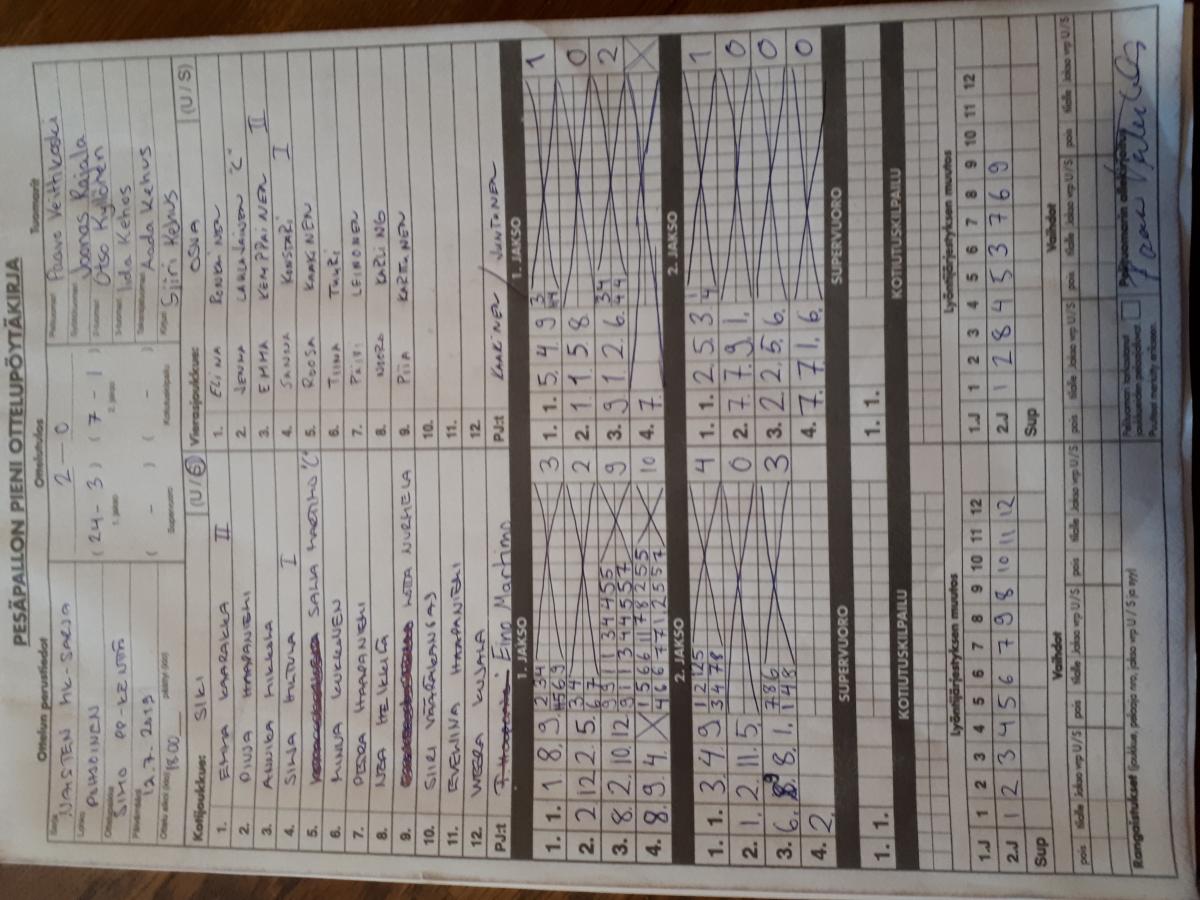 PESÄPALLON PIENI OTTELUPÖYTÄKIRJA
Ottelun perustiedot
Ottelutulos
Tuomarit
Sarja NAISTEN MK-SARJA
Lohko POHJOINEN
Ottelupaikka SIMO PP-KENTTÄ
Päivämäärä 12.7.2019
Ottelu alkoi (klo) 18:00 päättyi (klo)
2 - 0
( 24 - 3 ) ( 7 - 1 )
1. jakso 2. jakso
( - ) ( - )
Supervuoro Kotiutuskilpailu
Pelituomari Paavo Veittikoski
Syöttötuomari Joonas Rajala
2-tuomari Otso Kyllönen
3-tuomari Iida Kehus
Takarajatuomari Aada Kehus
Kirjuri Siiri Kehus
Kotijoukkue: SIKI (U / S)
1. EMMA KAARAKKA II
2. PINJA HAAPANIEMI
3. ANNIKA MIKKOLA
4. SINJA MATULA I
5. SANNA MARTIMO "C"
6. MINNA KUKKONEN
7. PETRA HAAPANIEMI
8. NEA HEIKKILÄ
9. LOTTA NURMELA
10. SIIRI VÄÄRÄKANGAS
11. EVELIINA HAAPANIEMI
12. VEERA KUJALA
PJ:t Eino Martimo
Vierasjoukkue: OSNA (U / S)
1. ELINA RONKAINEN
2. JENNA LAULAINEN "C"
3. EMMA KEMPPAINEN II
4. SANNA KONSTARI I
5. ROOSA KAAKINEN
6. TIINA TUURI
7. PÄIVI LEINONEN
8. NOORA KARLING
9. PIIA KARTUNEN
10.
11.
12.
PJ:t KAAKINEN / JUNTUNEN
1. JAKSO
1. JAKSO
1. 1. 1 8. 9. 2 3 4 4 5 6 9 3
2. 2 12 2. 5. 3 4 6 7 2
3. 8. 2. 10. 12 9 9 1 1 1 3 4 4 5 5 9 1 1 3 4 4 5 5 7 9
4. 8. 9. 4. 1 5 6 6 1 1 7 8 2 5 5 4 6 6 7 7 1 2 5 5 7 10
1. 1. 5. 4. 9 3 4 4 1
2. 1. 1. 5. 8. 0
3. 9. 1. 2. 6. 3 4 4 4 2
4. 7.
2. JAKSO
2. JAKSO
1. 1. 3. 4. 9 1 2 12 5 3 4 7 8 4
2. 1. 2. 11. 5. 0
3. 6. 9 8. 1. 7 8 6 1 4 8 3
4. 2.
1. 1. 2. 5. 3. 1 4 1
2. 7. 7. 9. 1. 0
3. 2. 2. 5. 6. 0
4. 7. 7. 1. 6. 0
SUPERVUORO
SUPERVUORO
1. 1.
1. 1.
KOTIUTUSKILPAILU
KOTIUTUSKILPAILU
Lyöntijärjestyksen muutos
Lyöntijärjestyksen muutos
1.J 1 2 3 4 5 6 7 8 9 10 11 12
2.J 1 2 3 4 5 6 7 9 8 10 11 12
Sup
1.J 1 2 3 4 5 6 7 8 9 10 11 12
2.J 1 2 8 4 5 3 7 6 9
Sup
Vaihdot
Vaihdot
pois tilalle Jakso vrp U / S pois tilalle Jakso vrp U / S pois tilalle Jakso vrp U / S
pois tilalle Jakso vrp U / S pois tilalle Jakso vrp U / S pois tilalle Jakso vrp U / S
Rangaistukset (joukkue, pelaaja nro, jakso vrp U / S ja syy)